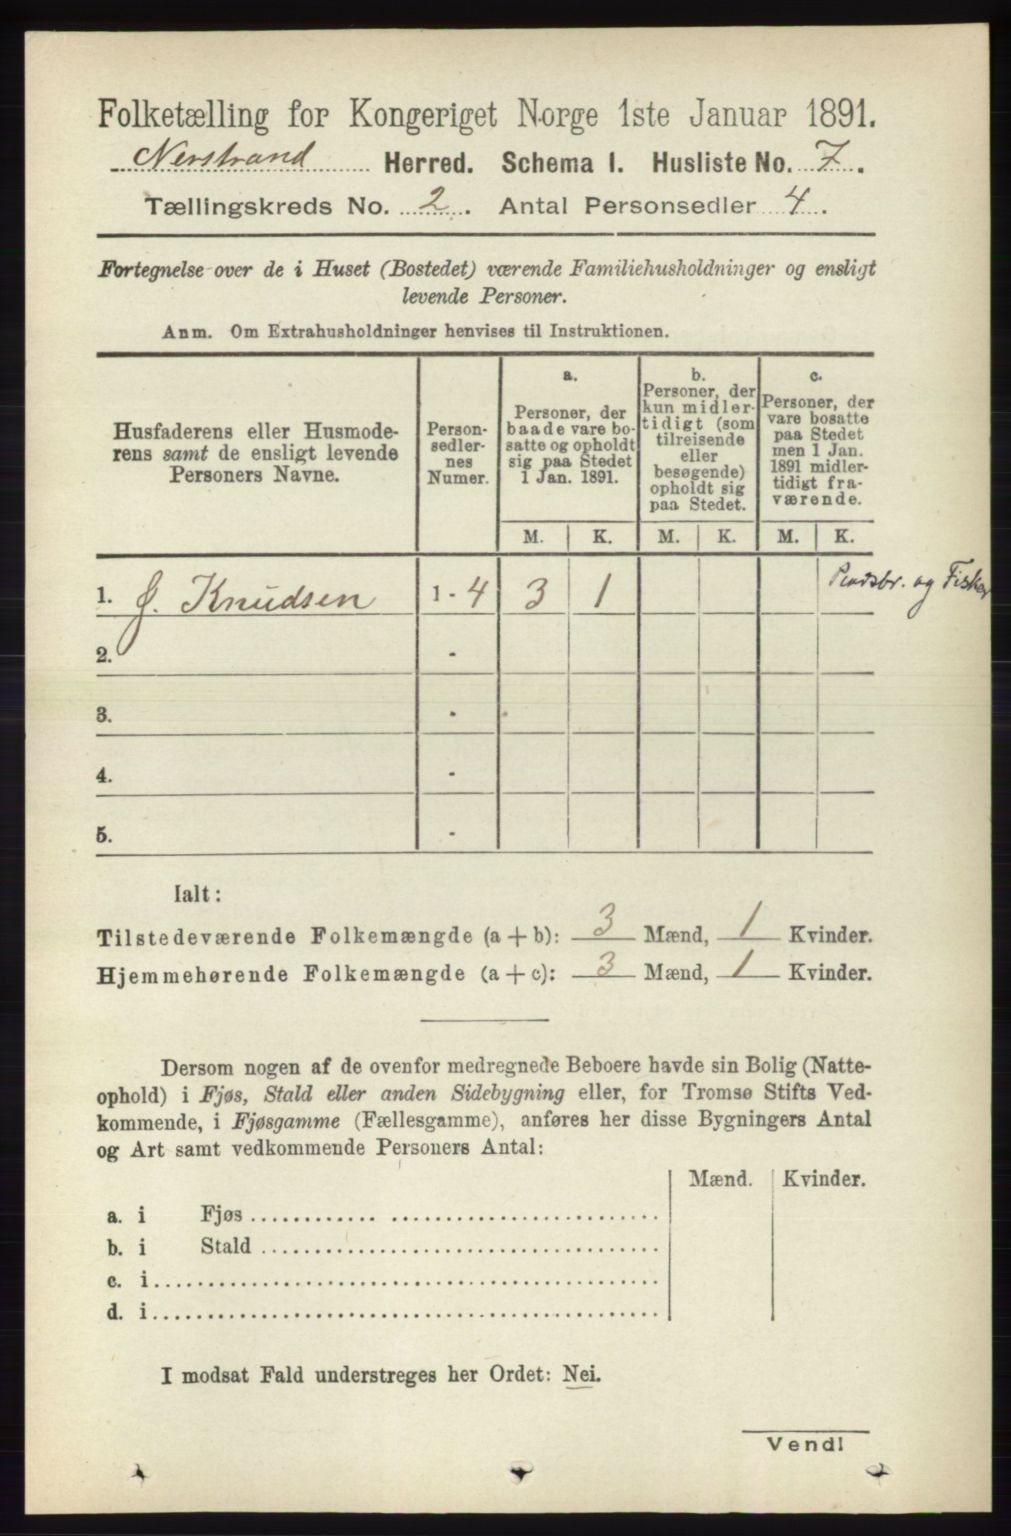 Folketælling for Kongeriget Norge 1ste Januar 1891.
Nerstrand Herred. Schema I. Husliste No. 7.
Tællingskreds No. 2. Antal Personsedler 4.
Fortegnelse over de i Huset (Bostedet) værende Familiehusholdninger og ensligt
levende Personer.
Anm. Om Extrahusholdninger henvises til Instruktionen.
Husfaderens eller Husmode-
rens samt de ensligt levende
Personers Navne.
Person-
sedler-
nes
Numer.
a.
Personer, der
baade vare bo-
satte og opholdt
sig paa Stedet
1 Jan. 1891.
b.
Personer, der
kun midler-
tidigt (som
tilreisende
eller
besøgende)
opholdt sig
paa Stedet.
c.
Personer, der
vare bosatte
paa Stedet
men 1 Jan.
1891 midler-
tidigt fra-
værende.
M. K. M. K. M. K.
1. J. Knudsen 1 - 4 3 1 og Fisker
2. -
3. -
4. -
5. -
Ialt:
Tilstedeværende Folkemængde (a + b): 3 Mænd, 1 Kvinder.
Hjemmehørende Folkemængde (a + c): 3 Mænd, 1 Kvinder.
Dersom nogen af de ovenfor medregnede Beboere havde sin Bolig (Natte-
ophold) i Fjøs, Stald eller anden Sidebygning eller, for Tromsø Stifts Ved-
kommende, i Fjøsgamme (Fællesgamme), anføres her disse Bygningers Antal
og Art samt vedkommende Personers Antal:
Mænd. Kvinder.
a. i Fjøs
b. i Stald
c. i
d. i
I modsat Fald understreges her Ordet: Nei.
Vend!